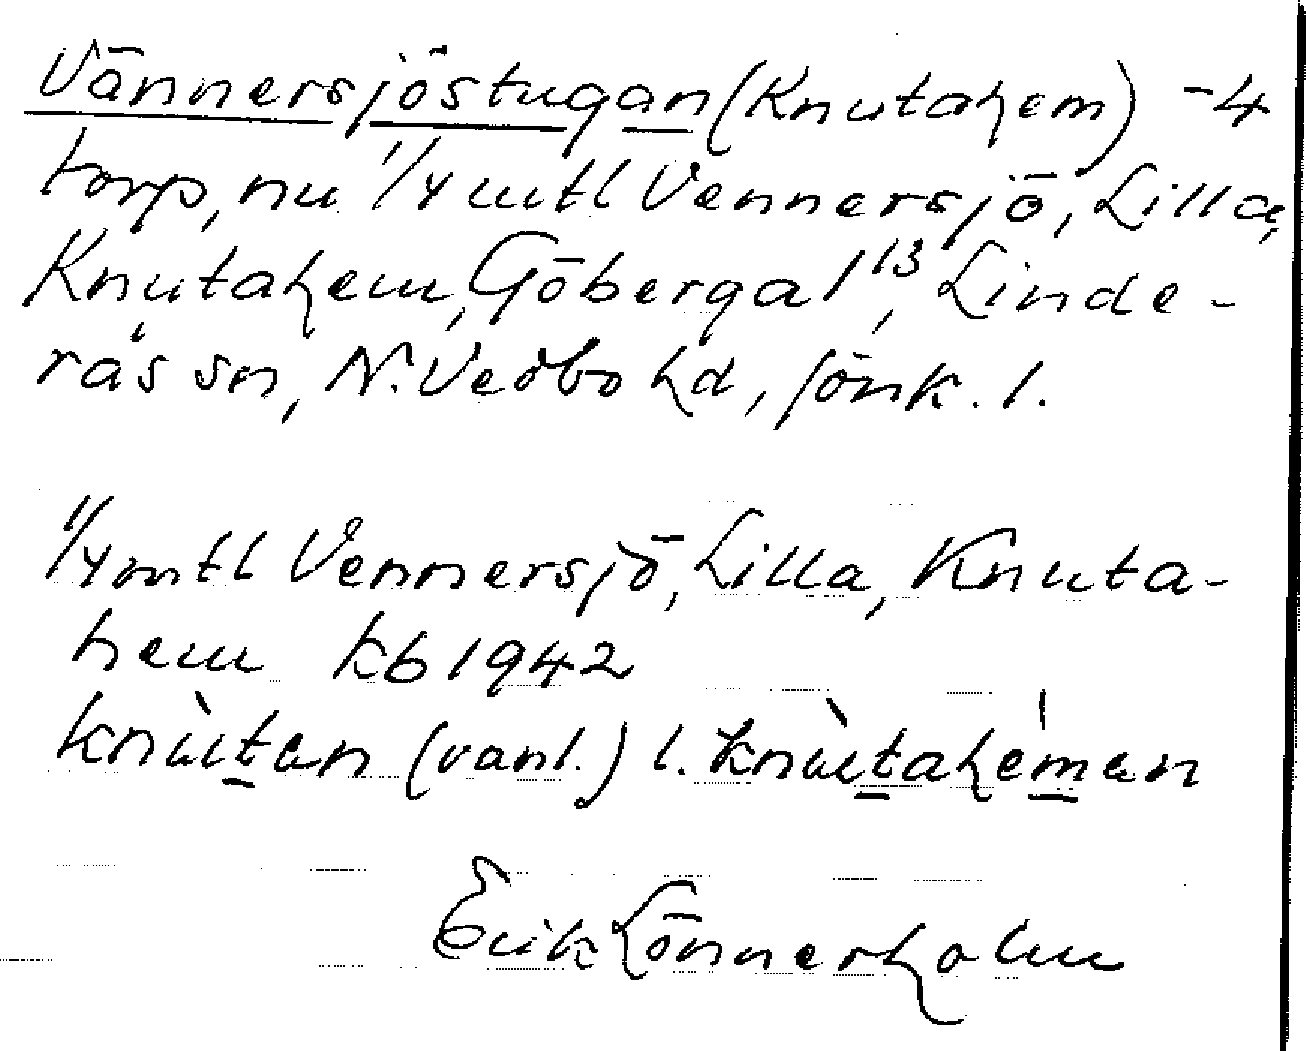 Vännersjöstugan (Knutahem) -4
torp, nu 1/4 mtl Vennersjö, Lilla,
Knutahem, Göberga 1¹³, Linde-
rås sn, N. Vedbo hd, Jönk. l.
1/4 mtl Vennersjö, Lilla, Knuta-
hem kb 1942
knùtan (vanl.) l. knùtahémen
Erik Lönnerholm